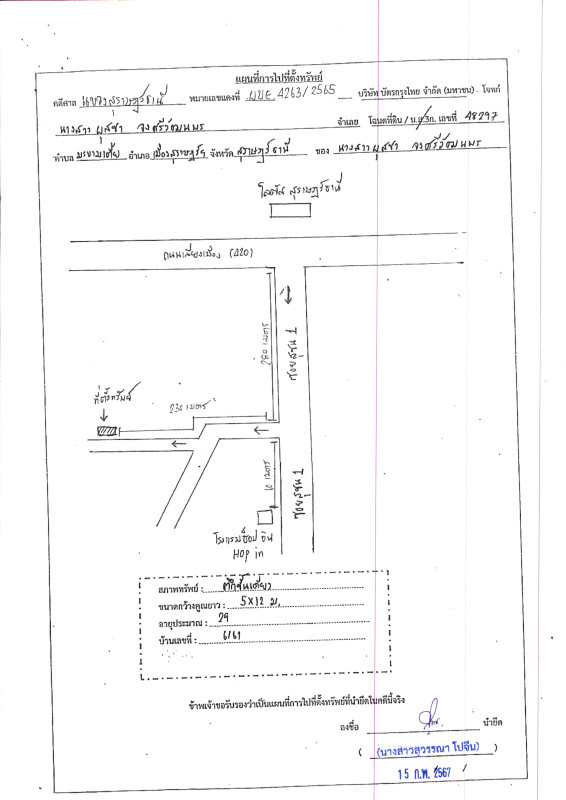 แผนที่การไปที่ตั้งทรัพย์
คดีศาล แขวงสุราษฎร์ธานี หมายเลขแดงที่ ผบE 4263/2565 บริษัท บัตรกรุงไทย จำกัด (มหาชน). โจทก์
นางสาว บุสชา จงศรีวัฒนพร จำเลย โฉนดที่ดิน / น.ส.3ก. เลขที่ 48297
ตำบล มะขามเตี้ย อำเภอ เมืองสุราษฎร์ฯ จังหวัด สุราษฎร์ธานี ของ นางสาว บุสชา จงศรีวัฒนพร
โลตัส สุราษฎร์ธานี
ถนนเลี่ยงเมือง (420)
ซอยสุชน 1
250 เมตร
ที่ตั้งทรัพย์
230 เมตร
10 เมตร
ซอยสุชน 1
โรงแรมฮ็อป อิน
HOP in
สภาพทรัพย์ : ตึกชั้นเดียว
ขนาดกว้างคูณยาว : 5x12 ม.
อายุประมาณ : 29
บ้านเลขที่ : 6/61
ข้าพเจ้าขอรับรองว่าเป็นแผนที่การไปที่ตั้งทรัพย์ที่นำยึดในคดีนี้จริง
ลงชื่อ นำยึด
(นางสาวสุวรรณา โปจีน)
15 ก.พ. 2567